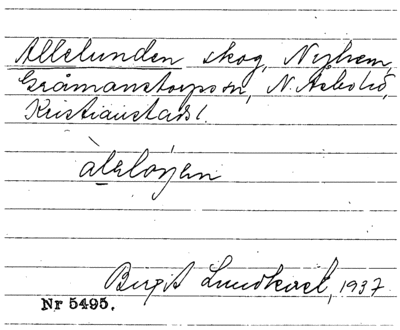 Allelunden skog, Nyhem,
Gråmanstorps sn, N. Åsbo hd,
Kristianstads l.
Birgit Lundkvist, 1937
Nr 5495.